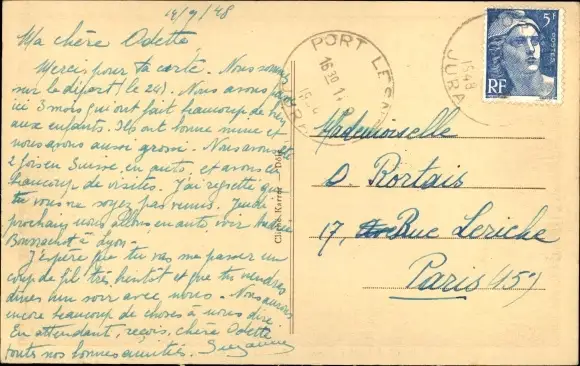 14/9/48
Ma chère Odette,
Merci pour ta carte. Nous sommes
sur le départ le 24). Nous avons passé
ici 3 mois qui ont fait beaucoup de bien
aux enfants. Ils ont bonne mine et
nous avons aussi grossi. Nous avons été
2 fois en Suisse en auto, et avons eu
beaucoup de visites. J'ai regretté que
tu vous ne soyez pas venus. Jeudi
prochain nous allons en auto voir
à Lyon -
J'espère que tu vas me passer un
coup de fil très bientôt et que tu viendras
dîner un soir avec nous. Nous aurons
encore beaucoup de choses à nous dire.
En attendant, reçois, chère Odette
toutes nos bonnes amitiés. Suzanne
Clichés Karrer - Dôle
PORT LESNEY
16 30
JURA
1948
JURA
5F
POSTES
RF
Mademoiselle
O. Portais
17, Rue Leriche
Paris (15)